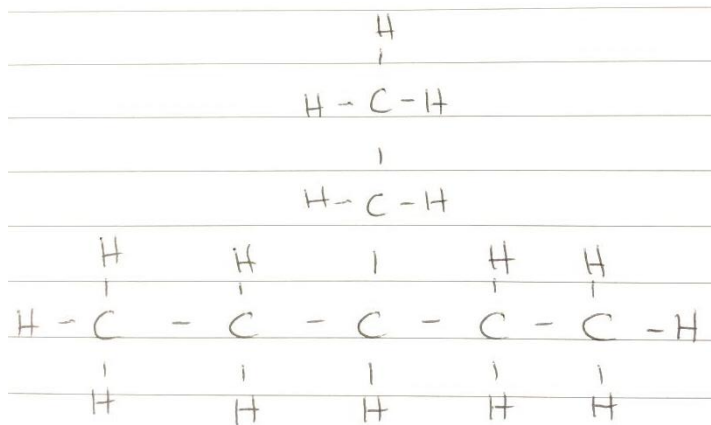 H
|
H - C - H
|
H - C - H
H H | H H
| | | |
H - C - C - C - C - C - H
| | | | |
H H H H H